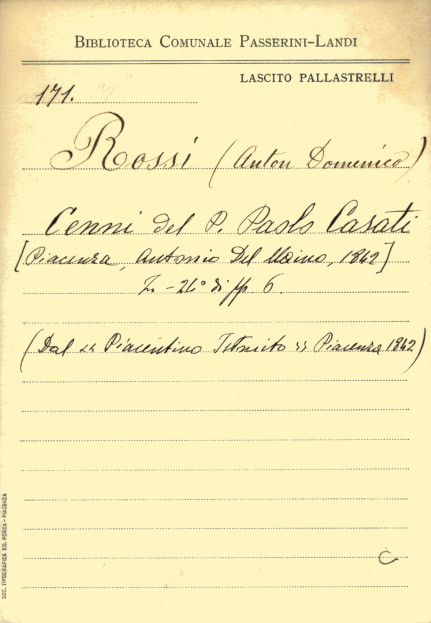 BIBLIOTECA COMUNALE PASSERINI-LANDI
LASCITO PALLASTRELLI
171.
Rossi (Anton Domenico)
Cenni del P. Paolo Casati
[Piacenza, Antonio Del Maino, 1842]
in-24° di pp 6.
(Dal « Piacentino Istruito » Piacenza 1842)
C
SOC. TIPOGRAFICA ED. PORTA - PIACENZA